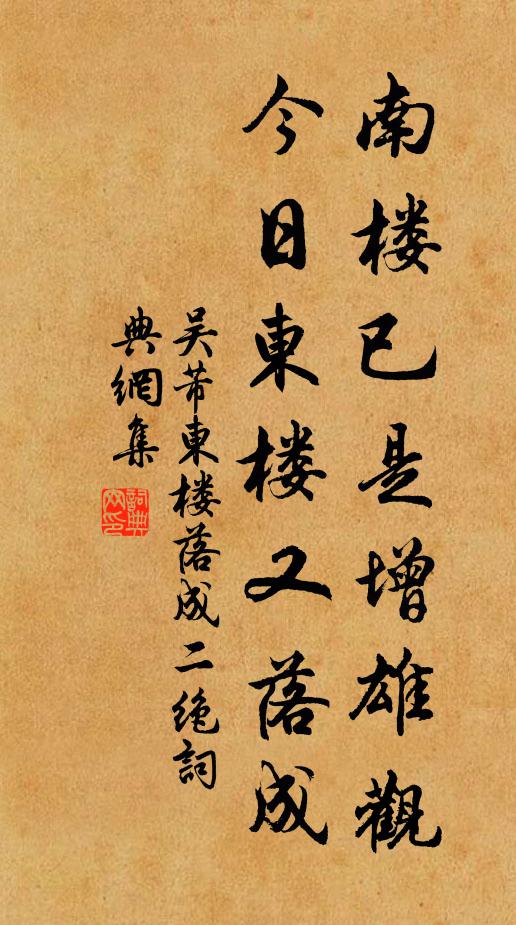 南楼已是增雄觀
今日東楼又落成
吴芾東楼落成二绝詞
典網集
詞典网印